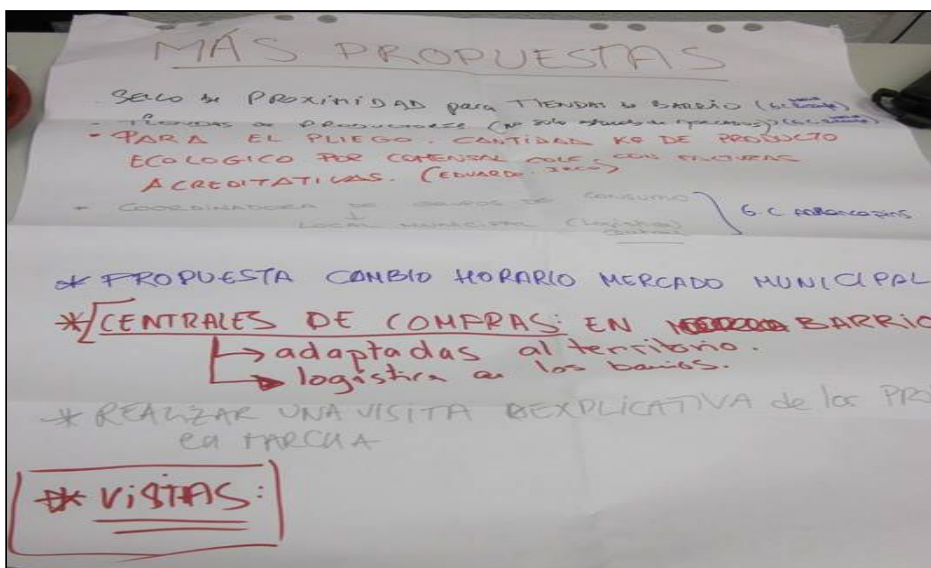 MÁS PROPUESTAS
- SELLO DE PROXIMIDAD para TIENDAS de BARRIO (G.C.
- TIENDAS DE PRODUCTORES (no solo
- PARA EL PLIEGO. CANTIDAD KG DE PRODUCTO
ECOLOGICO POR COMENSAL COLE, CON FACTURAS
ACREDITATIVAS. (EDUARDO.
- COORDINADORA DE GRUPOS DE CONSUMO
G.C.
LOCAL MUNICIPAL (Logística)
* PROPUESTA CAMBIO HORARIO MERCADO MUNICIPAL
* CENTRALES DE COMPRAS: EN BARRIO
→ adaptadas al territorio.
→ logística en los barrios.
* REALIZAR UNA VISITA EXPLICATIVA de los PRO
en MARCHA
* VISTAS: